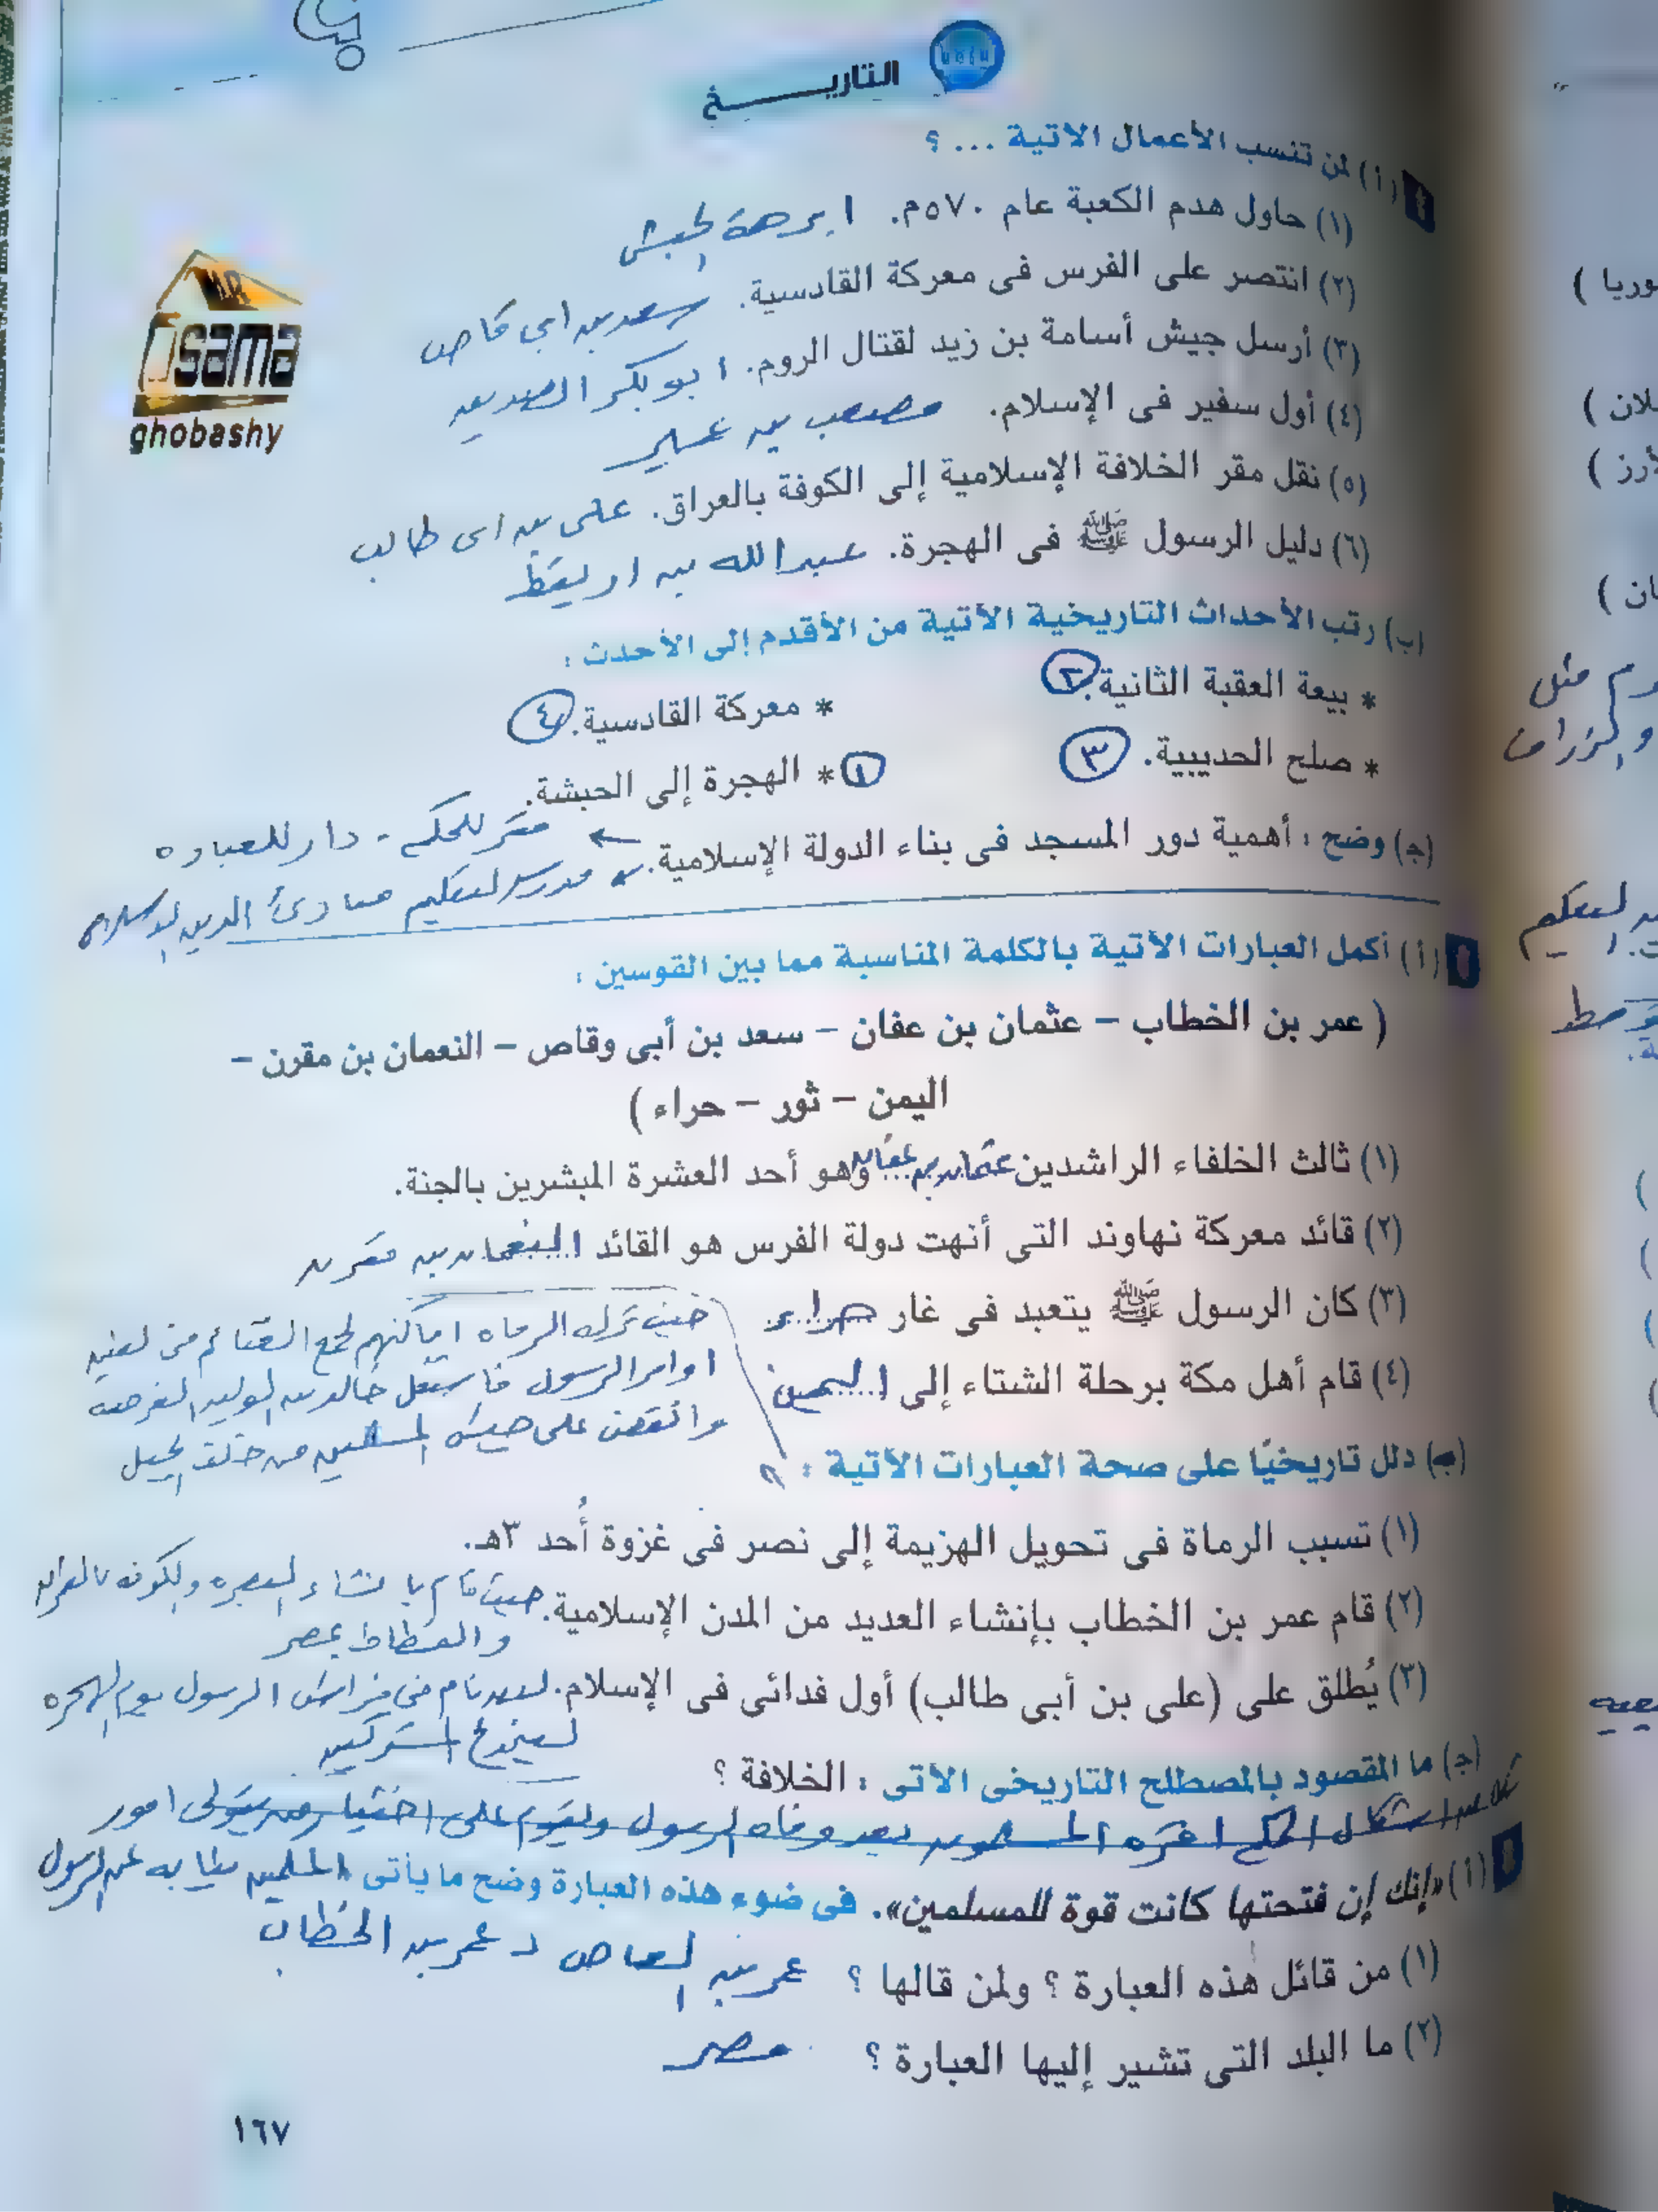 التاريخ
(أ) لمن تنسب الأعمال الآتية ... ؟
(١) حاول هدم الكعبة عام ٥٧٠م. ابرهة الحبشى
(٢) انتصر على الفرس فى معركة القادسية. سعد بن ابي وقاص
(٣) أرسل جيش أسامة بن زيد لقتال الروم. ابو بكر الصديق
(٤) أول سفير فى الإسلام. مصعب بن عمير
(٥) نقل مقر الخلافة الإسلامية إلى الكوفة بالعراق. على بن ابى طالب
(٦) دليل الرسول ﷺ فى الهجرة. عبد الله بن اريقط
(ب) رتب الأحداث التاريخية الآتية من الأقدم إلى الأحدث :
* بيعة العقبة الثانية. ٢
* معركة القادسية. ٤
* صلح الحديبية. ٣
* الهجرة إلى الحبشة. ١
(ج) وضح : أهمية دور المسجد فى بناء الدولة الإسلامية. مقر للحكم - دار للعباده
مدرسه لتعليم مبادئ الدين الاسلامى
(أ) أكمل العبارات الآتية بالكلمة المناسبة مما بين القوسين :
( عمر بن الخطاب – عثمان بن عفان – سعد بن أبى وقاص – النعمان بن مقرن –
اليمن – ثور – حراء )
(١) ثالث الخلفاء الراشدين عثمان بن عفان وهو أحد العشرة المبشرين بالجنة.
(٢) قائد معركة نهاوند التى أنهت دولة الفرس هو القائد النعمان بن مقرن
(٣) كان الرسول ﷺ يتعبد فى غار حراء
(٤) قام أهل مكة برحلة الشتاء إلى اليمن
(ب) دلل تاريخيًا على صحة العبارات الآتية :
حيث ترك الرماه اماكنهم لجمع الغنائم
اوامر الرسول فاستغل خالد بن الوليد الفرصه
وانقض على جيش المسلمين من خلف الجبل
(١) تسبب الرماة فى تحويل الهزيمة إلى نصر فى غزوة أُحد ٣هـ.
(٢) قام عمر بن الخطاب بإنشاء العديد من المدن الإسلامية. حيث قام بانشاء البصره والكوفه بالعراق
والفسطاط بمصر
(٣) يُطلق على (على بن أبى طالب) أول فدائى فى الإسلام. نام فى فراش الرسول يوم الهجره
ليخدع المشركين
(ج) ما المقصود بالمصطلح التاريخى الآتى : الخلافة ؟
شكل من اشكال الحكم اقره المسلمون بعد وفاه الرسول ويقوم على اختيار من يتولى امور
المسلمين نيابه عن الرسول
(أ) «إنك إن فتحتها كانت قوة للمسلمين». فى ضوء هذه العبارة وضح ما يأتى
(١) من قائل هذه العبارة ؟ ولمن قالها ؟ عمر بن العاص لـ عمر بن الخطاب
(٢) ما البلد التى تشير إليها العبارة ؟ مصر
١٦٧
MR
Osama
ghobashy